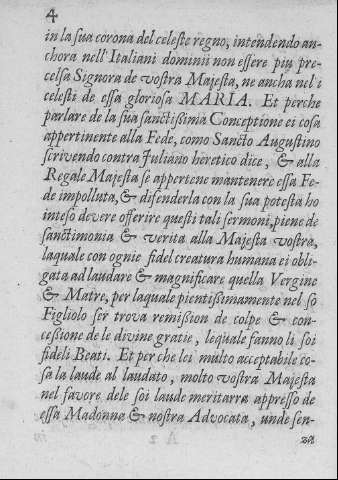 4
in la sua corona del celeste regno, intendendo an-
chora nell'Italiani dominii non essere piu pre-
celsa Signora de vostra Majesta, ne ancha nel i
celesti de essa gloriosa MARIA. Et perche
parlare de la sua sanctißima Conceptione ei cosa
appertinente alla Fede, como Sancto Augustino
scrivendo contra Juliano heretico dice, & alla
Regale Majesta se appertene mantenere essa Fe-
de impolluta, & difenderla con la sua potestà ho
inteso devere offerire questi tali sermoni, piene de
sanctimonia & verita alla Majesta vostra,
laquale con ognie fidel creatura humana ei obli-
gata ad laudare & magnificare quella Vergine
& Matre, per laquale pientißimamente nel so
Figliolo ser trova remißion de colpe & con-
ceßione de le divine gratie, lequale fanno li soi
fideli Beati. Et per che lei multo acceptabile co-
sa la laude al laudato, molto vostra Majesta
nel favore dele soi laude meritarra appresso de
essa Madonna & nostra Advocata, unde sen-
A 2
za